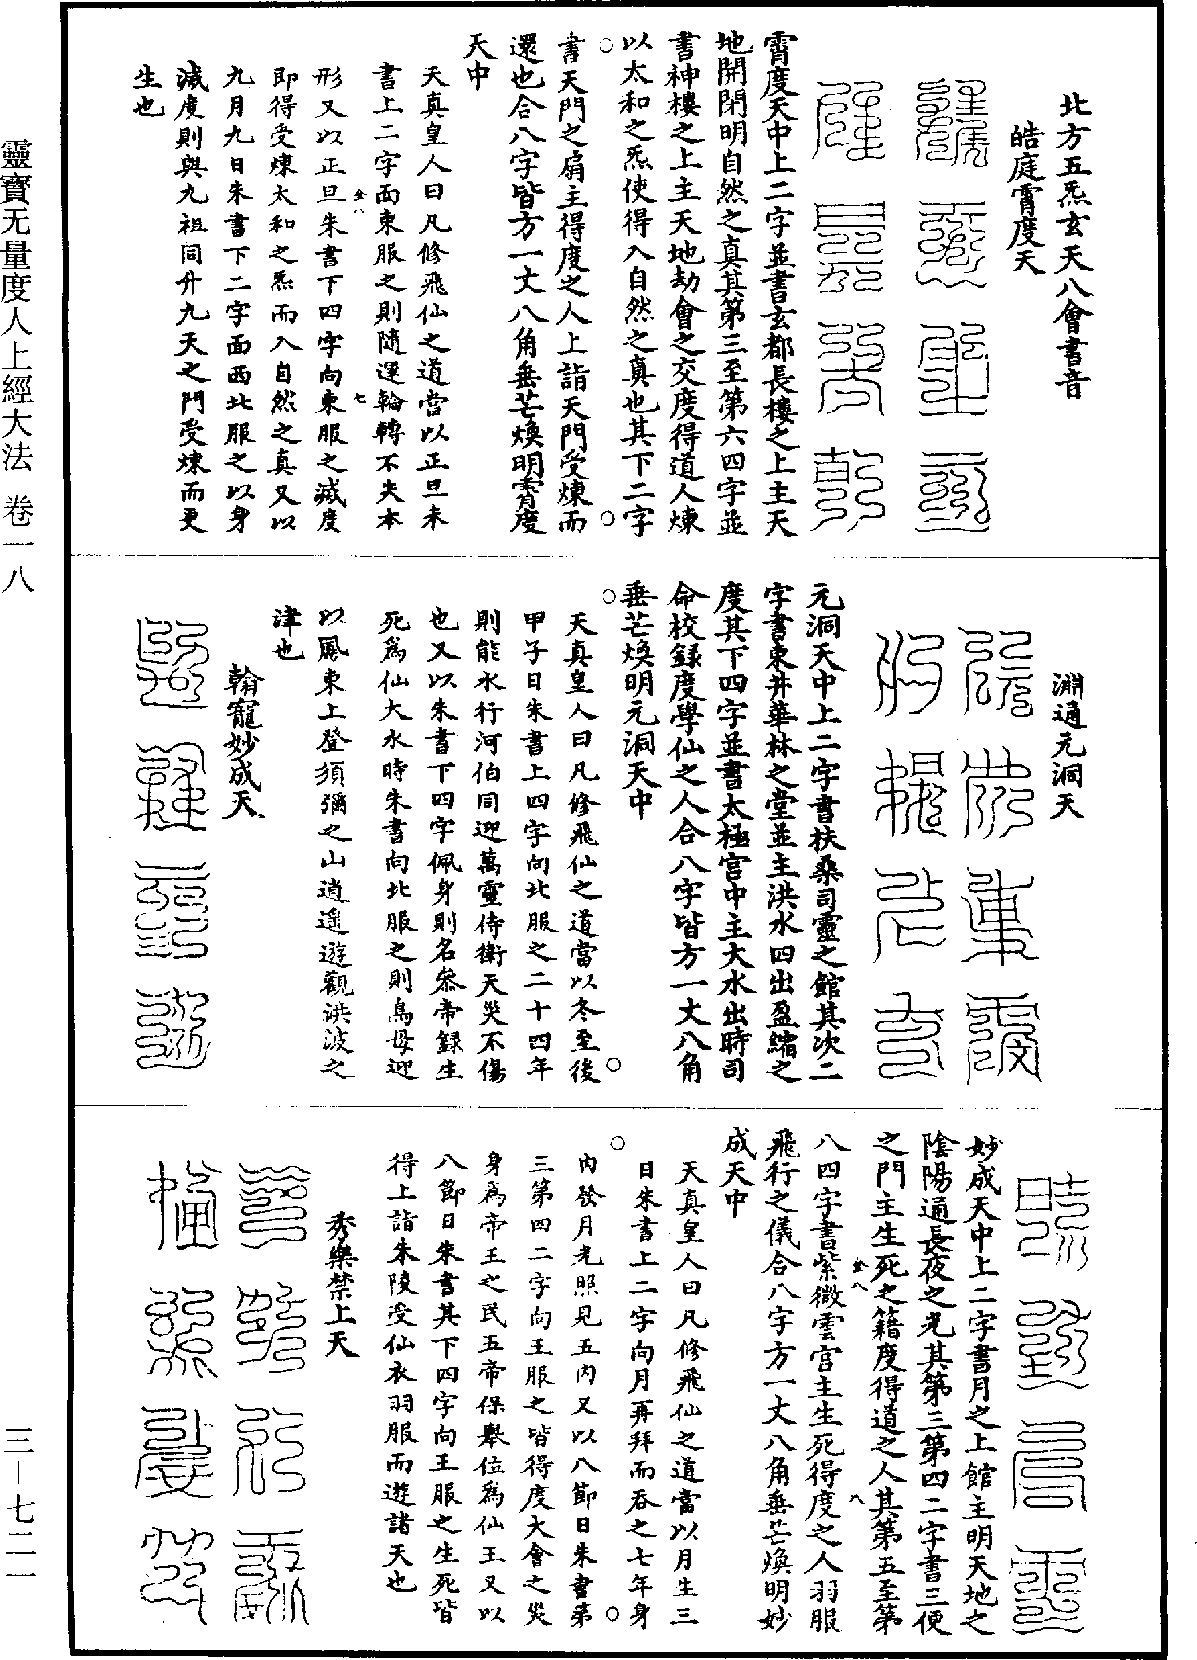 北方五炁玄天八會書音
皓庭霄度天
霄度天中上二字並書玄都長樓之上主天
地開閉明自然之真其第三至第六四字並
書神樓之上主天地劫會之交度得道人煉
以太和之炁使得入自然之真也其下二字
書天門之扇主得度之人上詣天門受煉而
還也合八字皆方一丈八角垂芒煥明霄度
天中
天真皇人曰凡修飛仙之道當以正旦未
書上二字面東服之則隨運輪轉不失本
形又以正旦朱書下四字向東服之滅度
即得受煉太和之炁而入自然之真又以
九月九日朱書下二字面西北服之以身
滅度則與九祖同升九天之門受煉而更
生也
淵通元洞天
元洞天中上二字書扶桑司靈之館其次二
字書東井華林之堂並主洪水四出盈縮之
度其下四字並書太極宮中主大水出時司
命校錄度學仙之人合八字皆方一丈八角
垂芒煥明元洞天中
天真皇人曰凡修飛仙之道當以冬至後
甲子日朱書上四字向北服之二十四年
則能水行河伯同迎萬靈侍衛天災不傷
也又以朱書下四字佩身則名參帝錄生
死爲仙大水時朱書向北服之則鳥母迎
以鳳東上登須彌之山逍遙遊觀洪波之
津也
翰寵妙成天
妙成天中上二字書月之上館主明天地之
陰陽通長夜之光其第三第四二字書三便
之門主生死之籍度得道之人其第五至第
八四字書紫微雲宮主生死得度之人羽服
飛行之儀合八字方一丈八角垂芒煥明妙
成天中
天真皇人曰凡修飛仙之道當以月生三
日朱書上二字向月再拜而吞之七年身
內發月光照見五內又以八節日朱書第
三第四二字向王服之皆得度大會之災
身爲帝王之民五帝保舉位爲仙王又以
八節日朱書其下四字向王服之生死皆
得上詣朱陵受仙衣羽服而遊諸天也
秀樂禁上天
靈寶无量度人上經大法 卷一八
三－七二一